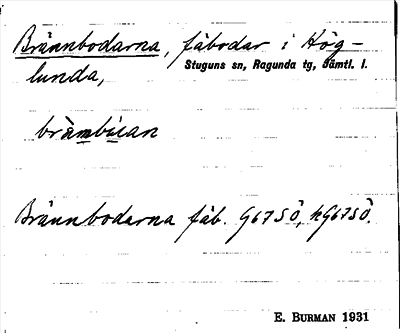 Brännbodarna, fäbodar i Hög-
Stuguns sn, Ragunda tg, Jämtl. l.
lunda,
bràmbúan
Brännbodarna fäb. G67SÖ, hG67SÖ.
E. BURMAN 1931